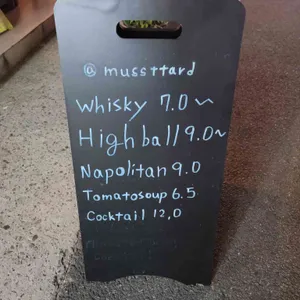 @ mussttard
Whisky 7.0~
Highball 9.0~
Napolitan 9.0
Tomatosoup 6.5
Cocktail 12,0